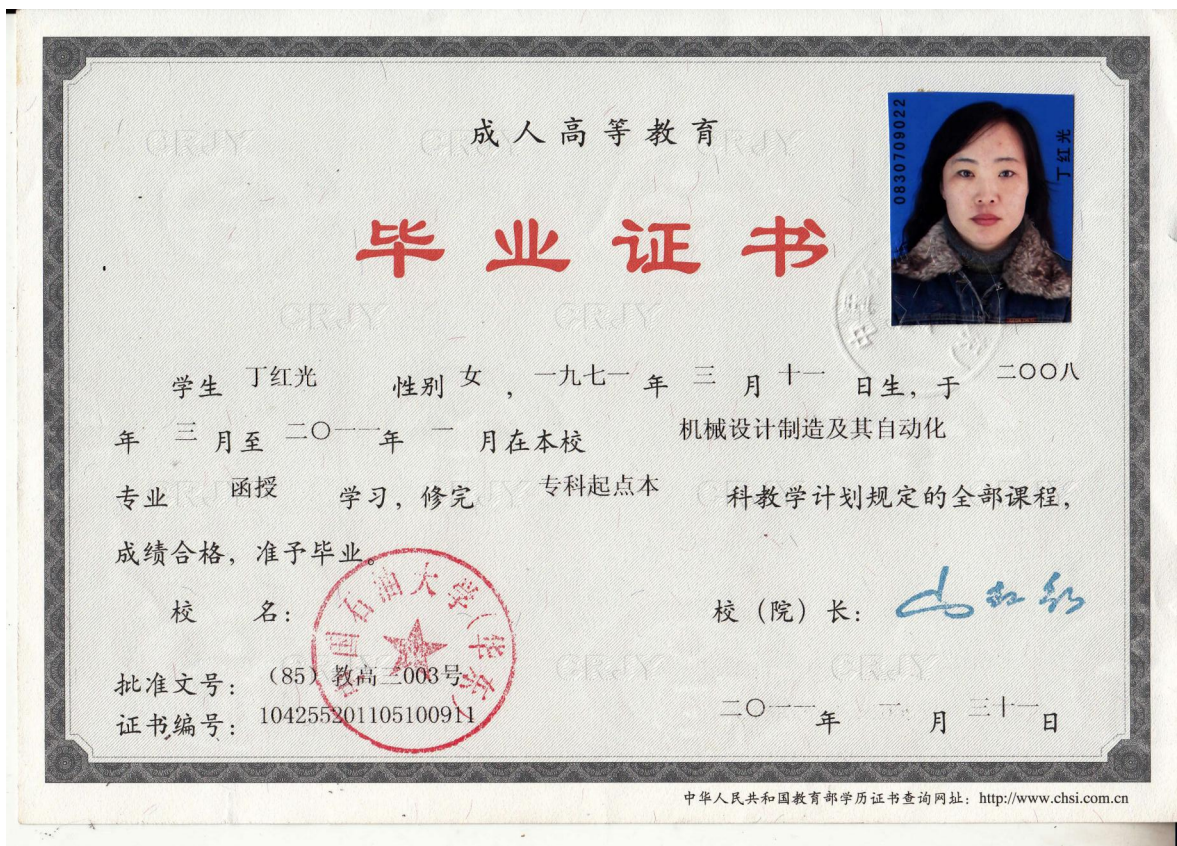 成人高等教育
毕业证书
0830709022
丁红光
学生 丁红光 性别 女 ， 一九七一 年 三 月 十一 日生，于 二〇〇八
年 三 月至 二〇一一 年 一 月在本校 机械设计制造及其自动化
专业 函授 学习，修完 专科起点本 科教学计划规定的全部课程，
成绩合格，准予毕业。
校 名：
中国石油大学（华东）
校（院）长：
批准文号：（85）教高三003号
证书编号：104255201105100911
二〇一一 年 一 月 三十一 日
中华人民共和国教育部学历证书查询网址：http://www.chsi.com.cn
CRJY